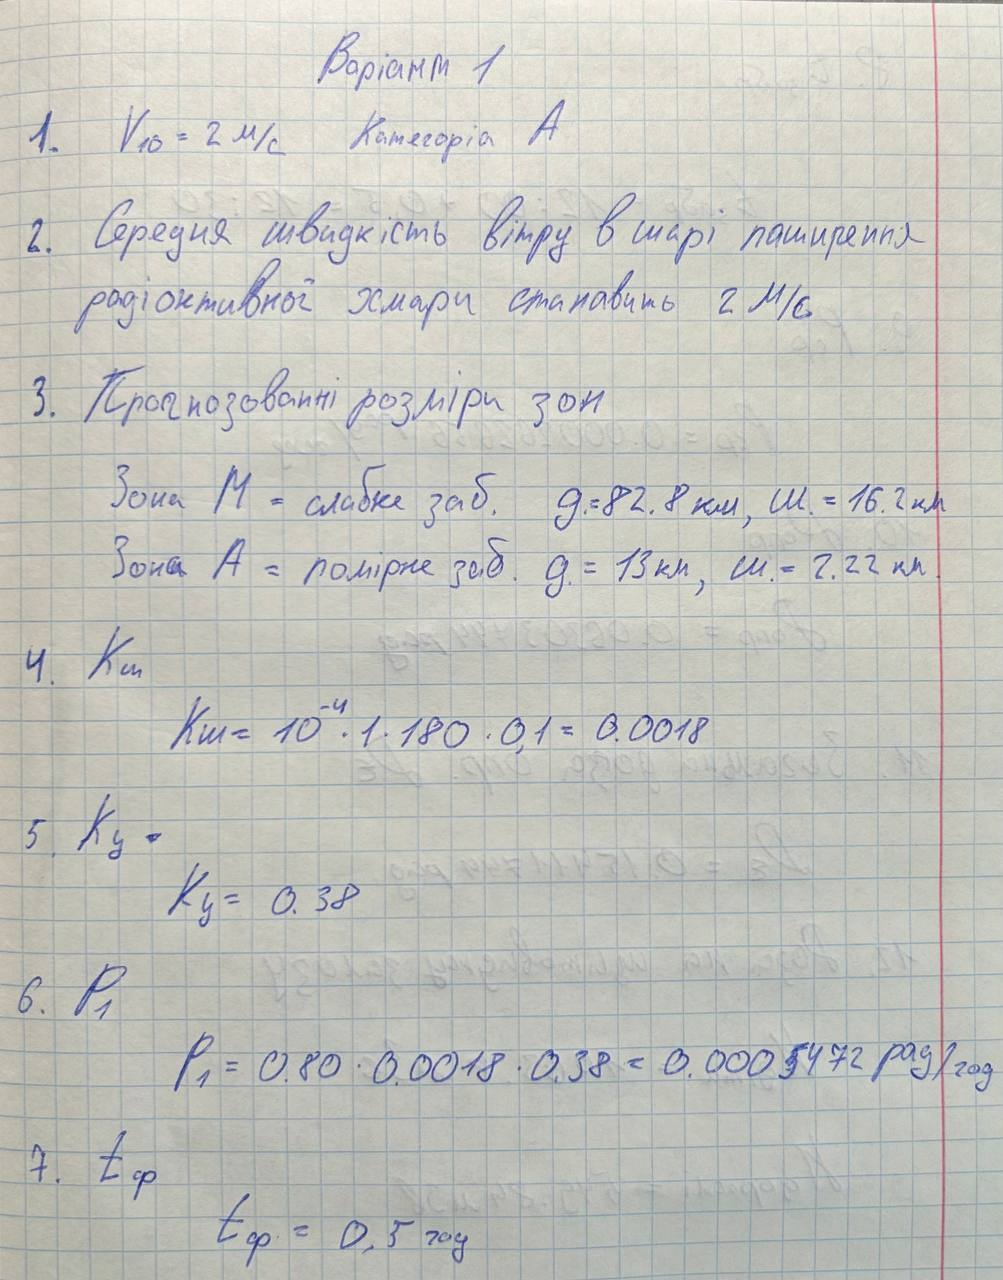 Варіант 1
1. V₁₀ = 2 м/с Категорія А
2. Середня швидкість вітру в шарі поширення
радіоктивної хмари становить 2 м/с
3. Прогнозованні розміри зон
Зона М = слабке заб. д.=82.8 км, ш.=16.2 км
Зона А = помірне заб. д.= 13 км, ш.= 2.22 км.
4. Кш
Кш= 10⁻⁴·1·180·0,1= 0.0018
5. Ку =
Ку= 0.38
6. Р₁
Р₁= 0.80·0.0018·0.38= 0.0005472 рад/год
7. tф
tф.= 0,5 год